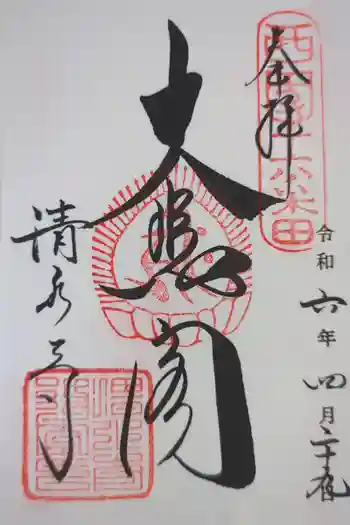 奉拝
西国十六番
令和六年四月二十五日
大悲閣
清水寺